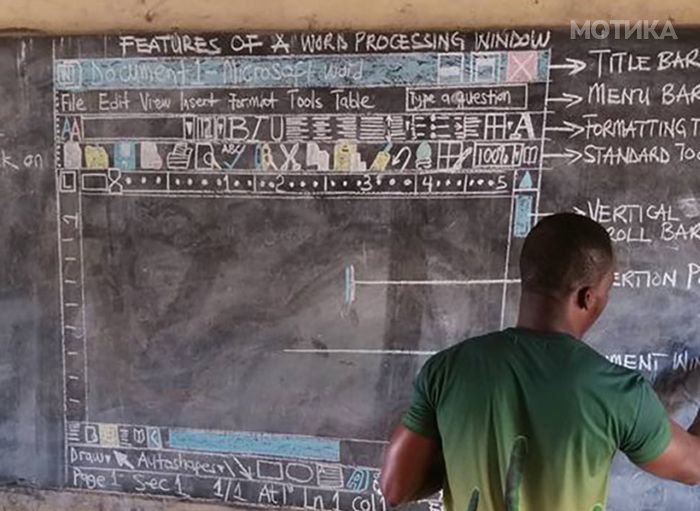 МОТИКА
FEATURES OF A WORD PROCESSING WINDOW
Document 1 - Microsoft Word
TITLE BAR
File Edit View Insert Format Tools Table
Type a question
MENU BAR
AA
12
B I U
A
FORMATTING T
ABC
100%
STANDARD TOO
k on
L
8 1 2 3 4 5
VERTICAL
ROLL BAR
ERTION P
MENT WIN
Draw
Autoshapes
Page 1 Sec 1 1/1 At 1" Ln 1 Col